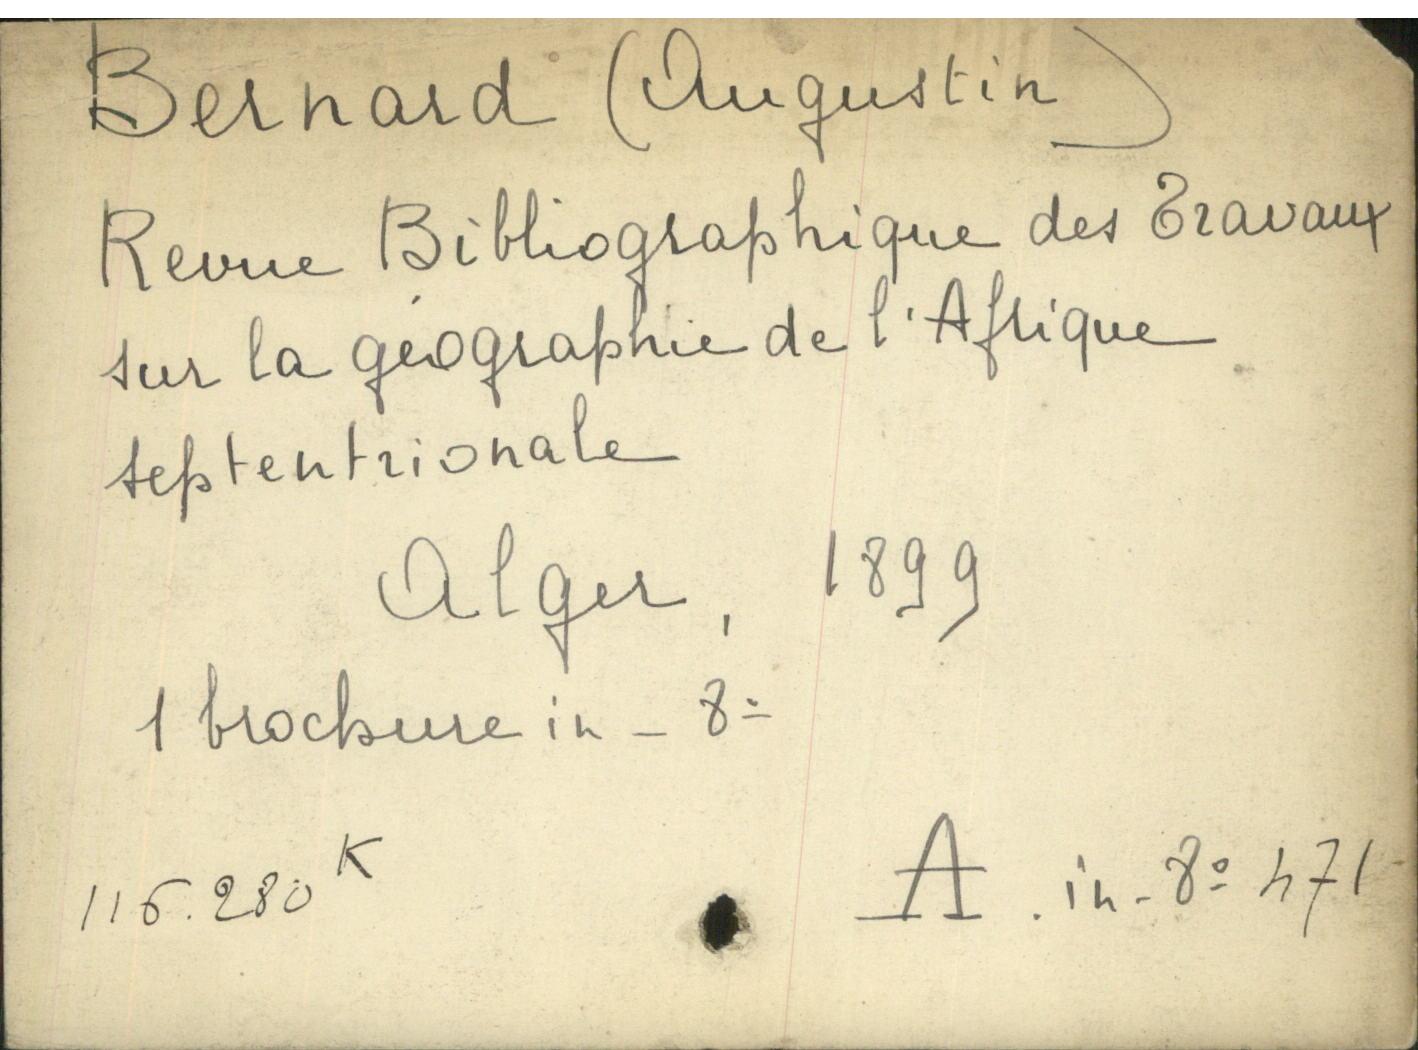 Bernard (Augustin)
Revue Bibliographique des Travaux
sur la géographie de l'Afrique
septentrionale
Alger, 1899
1 brochure in-8º
116.280 K
A. in-8º 471